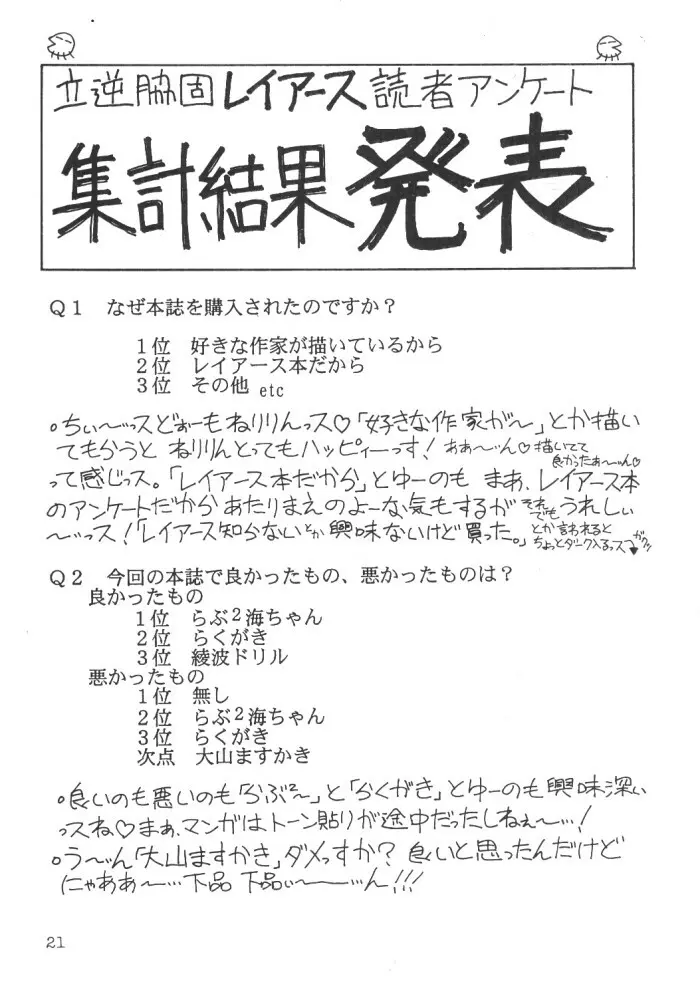 立逆脇固レイアース読者アンケート
集計結果発表
Q1 なぜ本誌を購入されたのですか?
1位 好きな作家が描いているから
2位 レイアース本だから
3位 その他 etc
。ちぃ〜っスどぉーもねりりんっス♡「好きな作家が〜」とか描い
てもらうと ねりりんとってもハッピィーっす! あぁ〜ん♡描いてて
良かったぁ〜ん♡
って感じっス。「レイアース本だから」とゆーのも まぁ、レイアース本
のアンケートだから あたりまえのよーな気もするが それでもうれしい
〜っス!「レイアース知らないとか興味ないけど買った。」とか言われると
ちょっとダーク入るっス
Q2 今回の本誌で良かったもの、悪かったものは?
良かったもの
1位 らぶ2海ちゃん
2位 らくがき
3位 綾波ドリル
悪かったもの
1位 無し
2位 らぶ2海ちゃん
3位 らくがき
次点 大山ますかき
。良いのも悪いのも「らぶ2〜」と「らくがき」とゆーのも興味深い
っスね♡まぁ、マンガはトーン貼りが途中だったしねぇ〜…!
。う〜ん「大山ますかき」ダメっすか? 良いと思ったんだけど
にゃああ〜…下品 下品ぃ〜…ん!!!
21